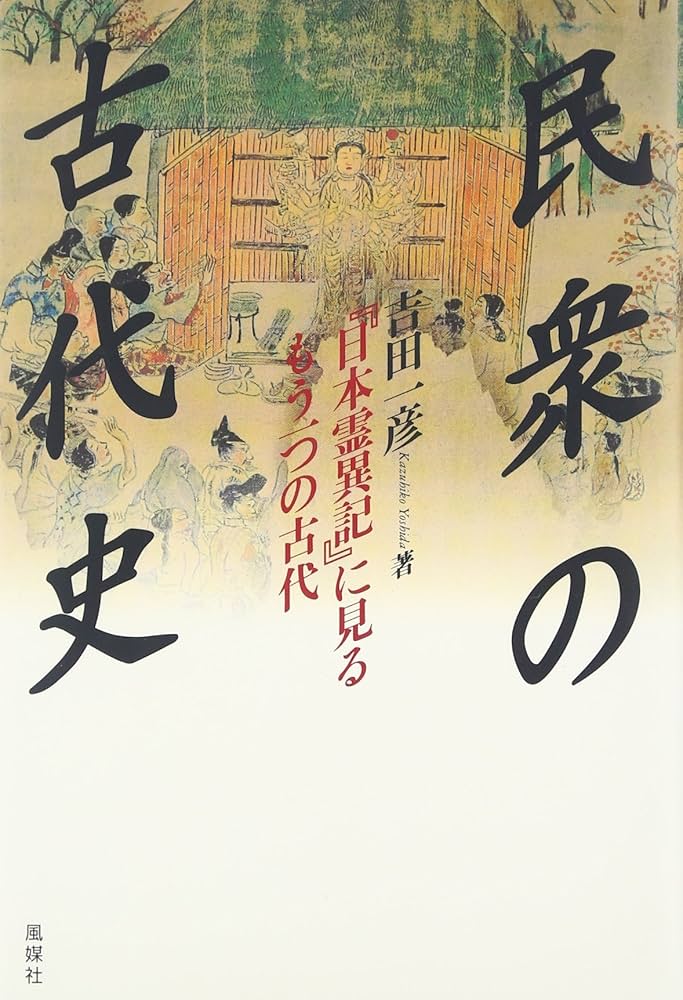 民衆の
古代史
吉田一彦 Kazuhiko Yoshida 著
『日本霊異記』に見る
もう一つの古代
風媒社